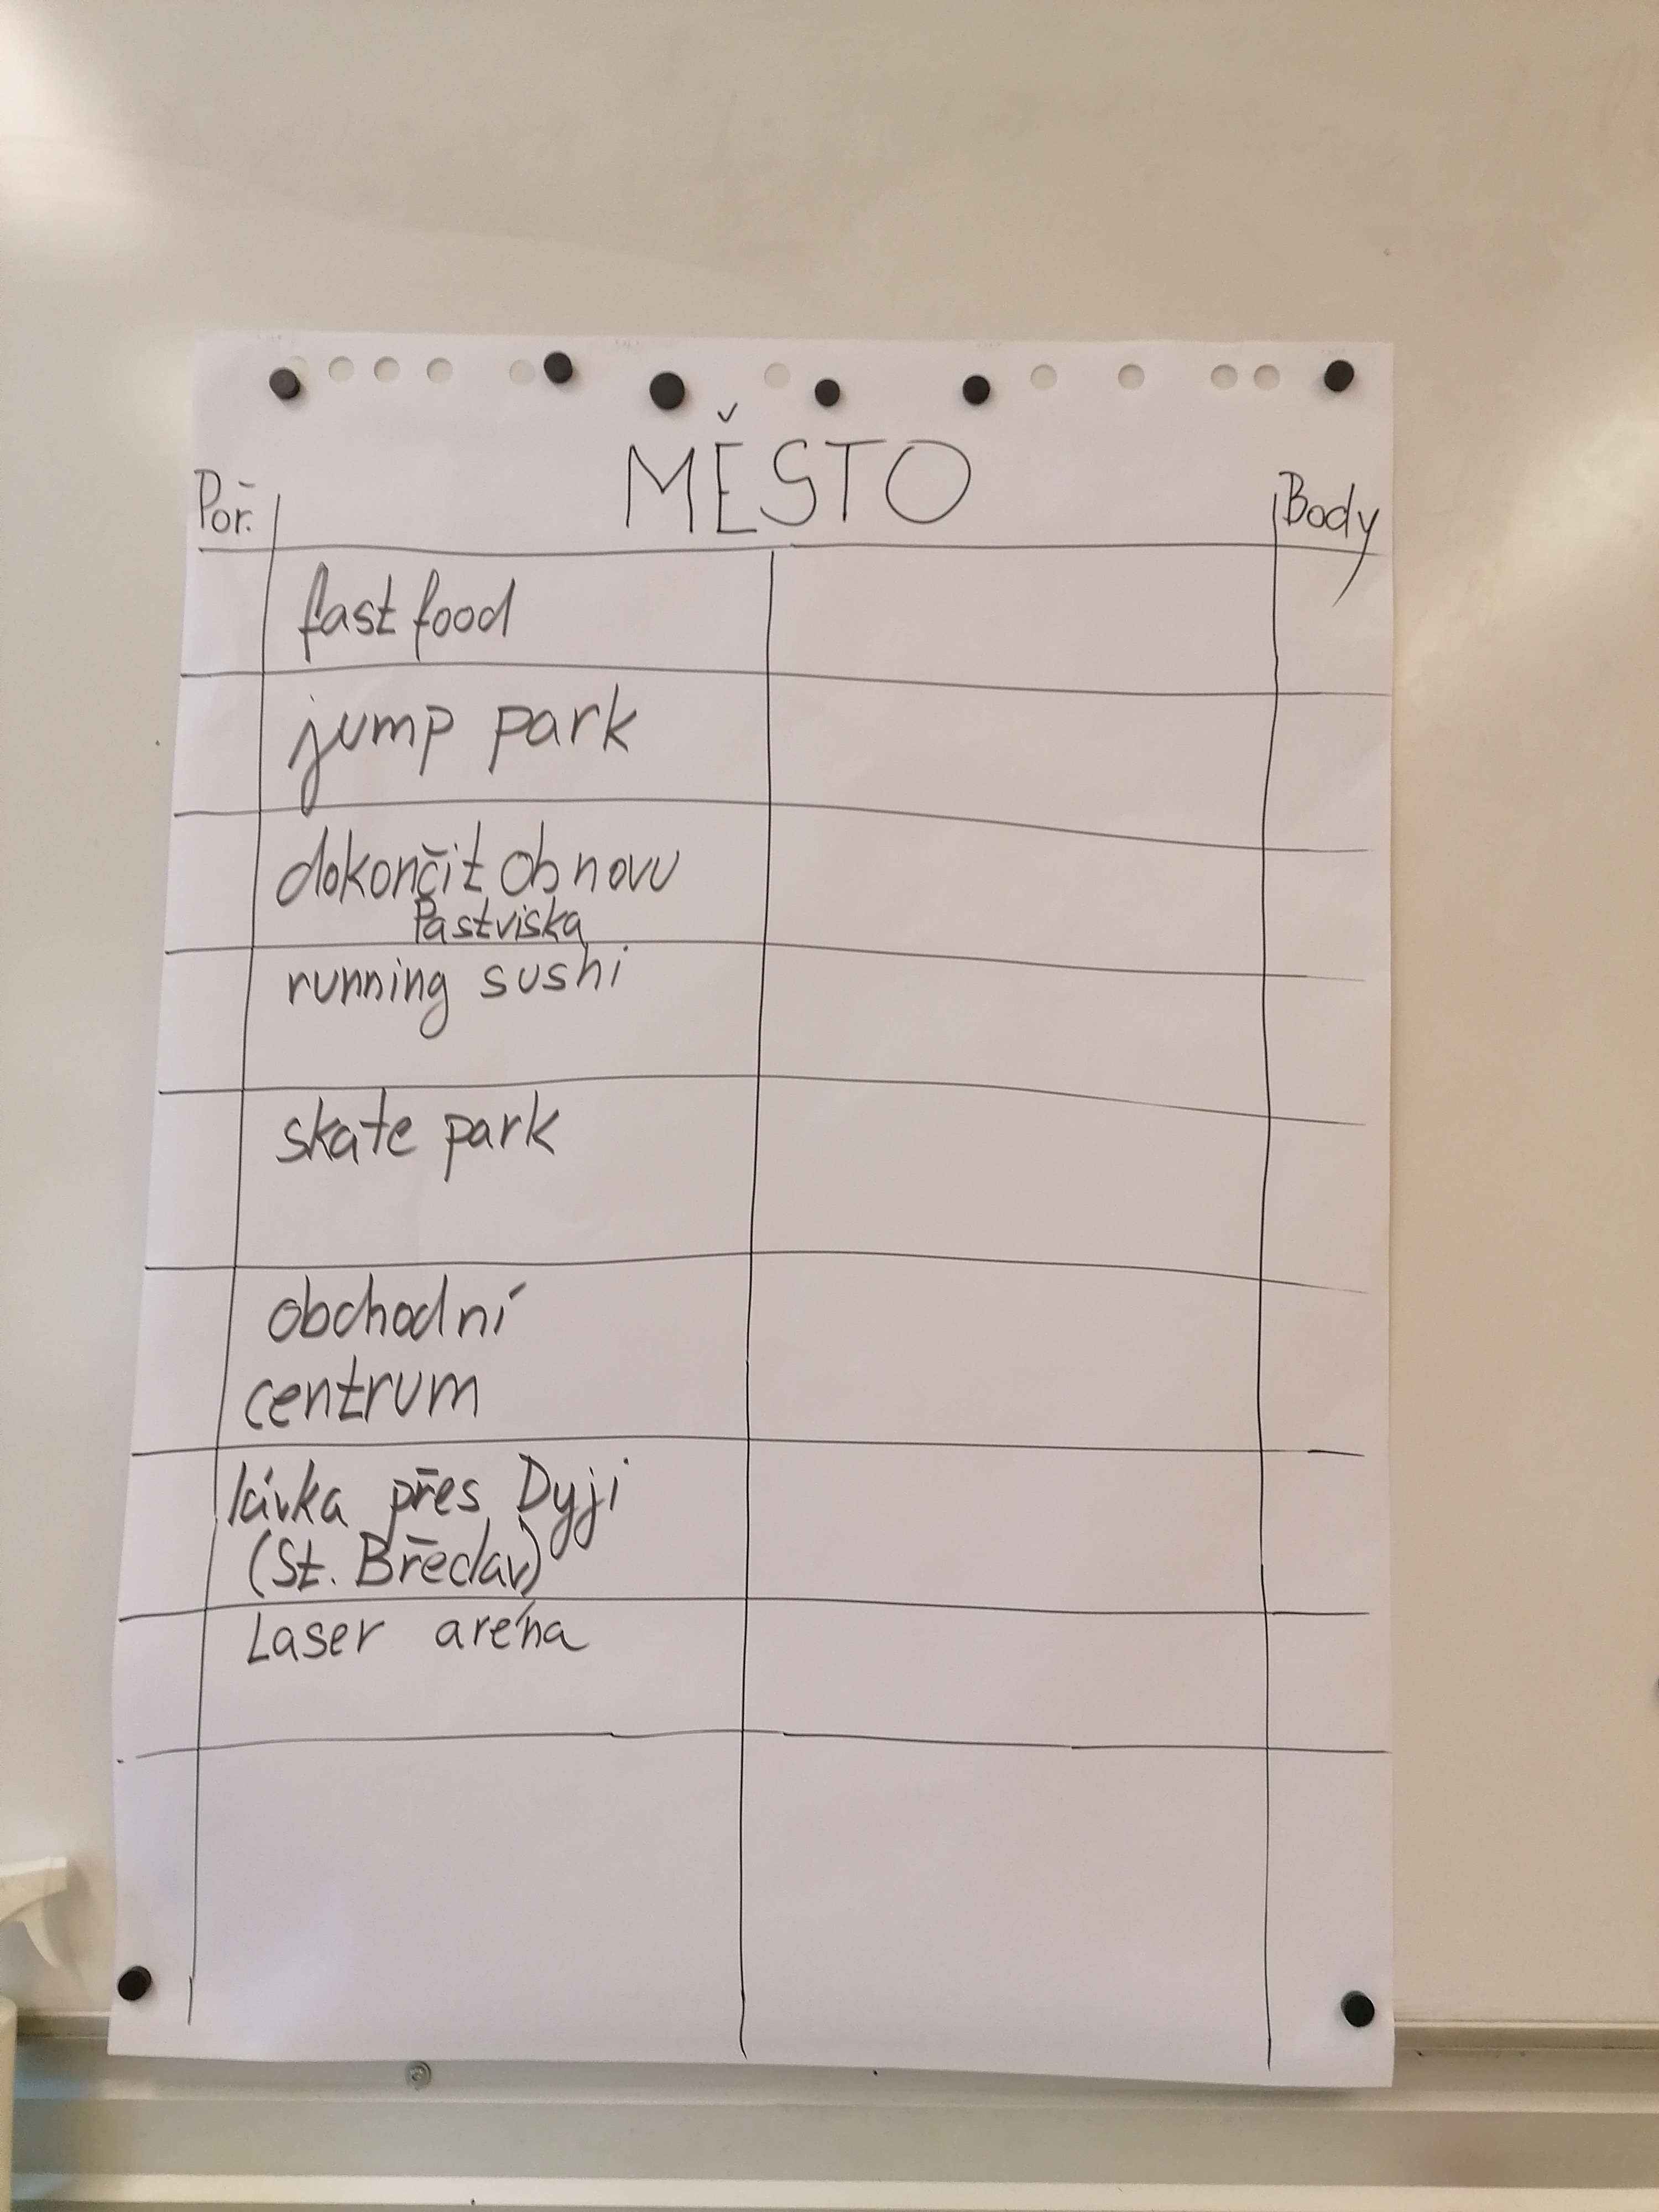 MĚSTO
Poř. Body
fast food
jump park
dokončit obnovu
Pastviska
running sushi
skate park
obchodní
centrum
lávka přes Dyji
(St. Břeclav)
Laser aréna